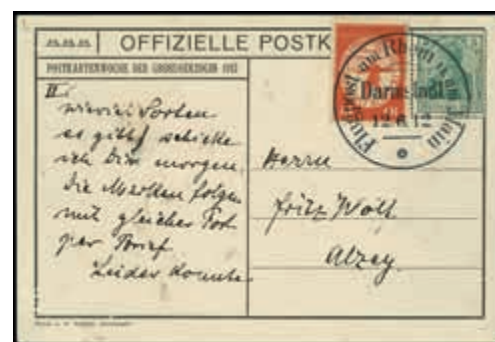 OFFIZIELLE POSTK
POSTKARTENWOCHE DER GROSSHERZOGIN 1912
Flugpost am Rhein u. am Main
Darmstadt
12.6.12
II.
wieviel Sorten
es gibt, schicke
ich Dir morgen.
Die Marken folgen
mit gleicher Post
per Brief
Leider konnte
Herrn
Fritz Wolf
Alzey.